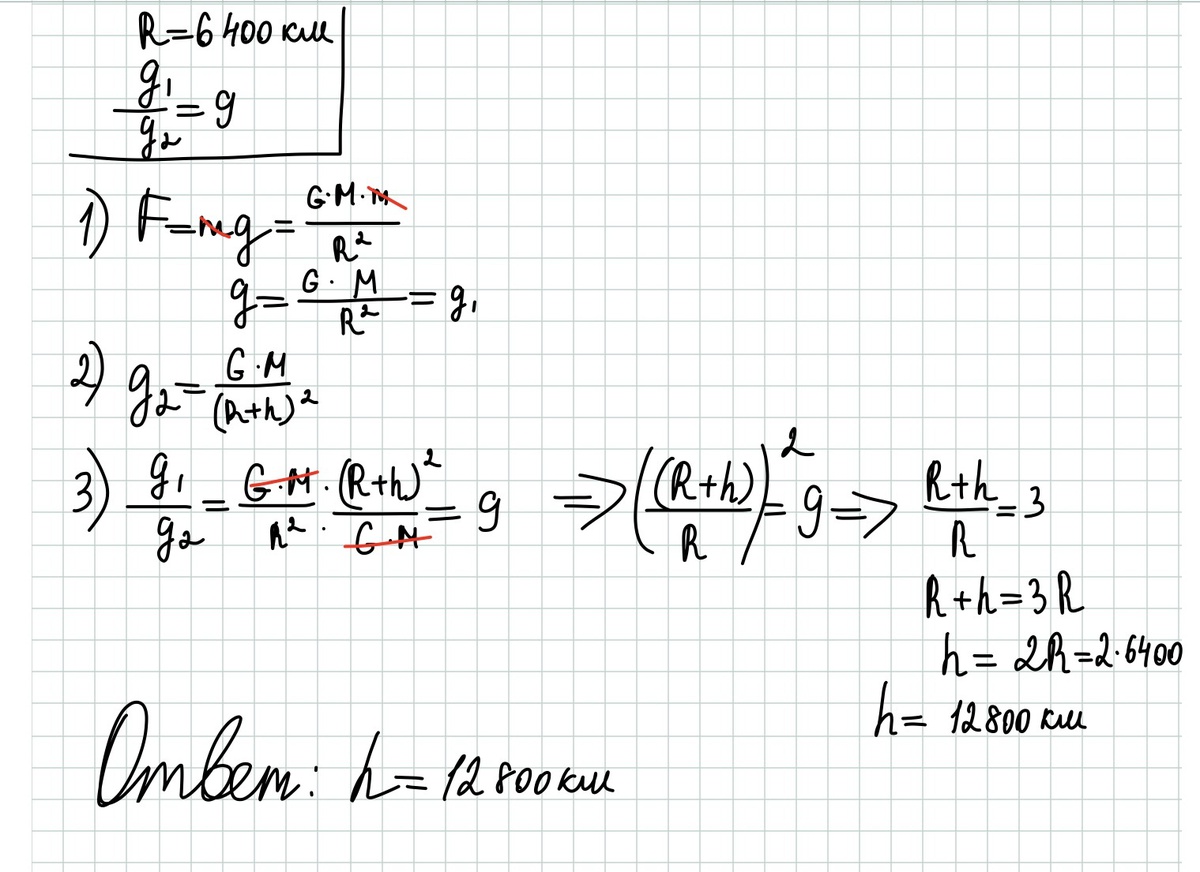 R=6 400 км
g₁/g₂ = 9
1) F=mg = G·M·m/R²
g = G·M/R² = g₁
2) g₂ = G·M/(R+h)²
3) g₁/g₂ = G·M/R² · (R+h)²/G·M = 9 => ((R+h)/R)² = 9 => R+h/R = 3
R+h=3R
h= 2R=2·6400
h= 12 800 км
Ответ: h= 12 800 км